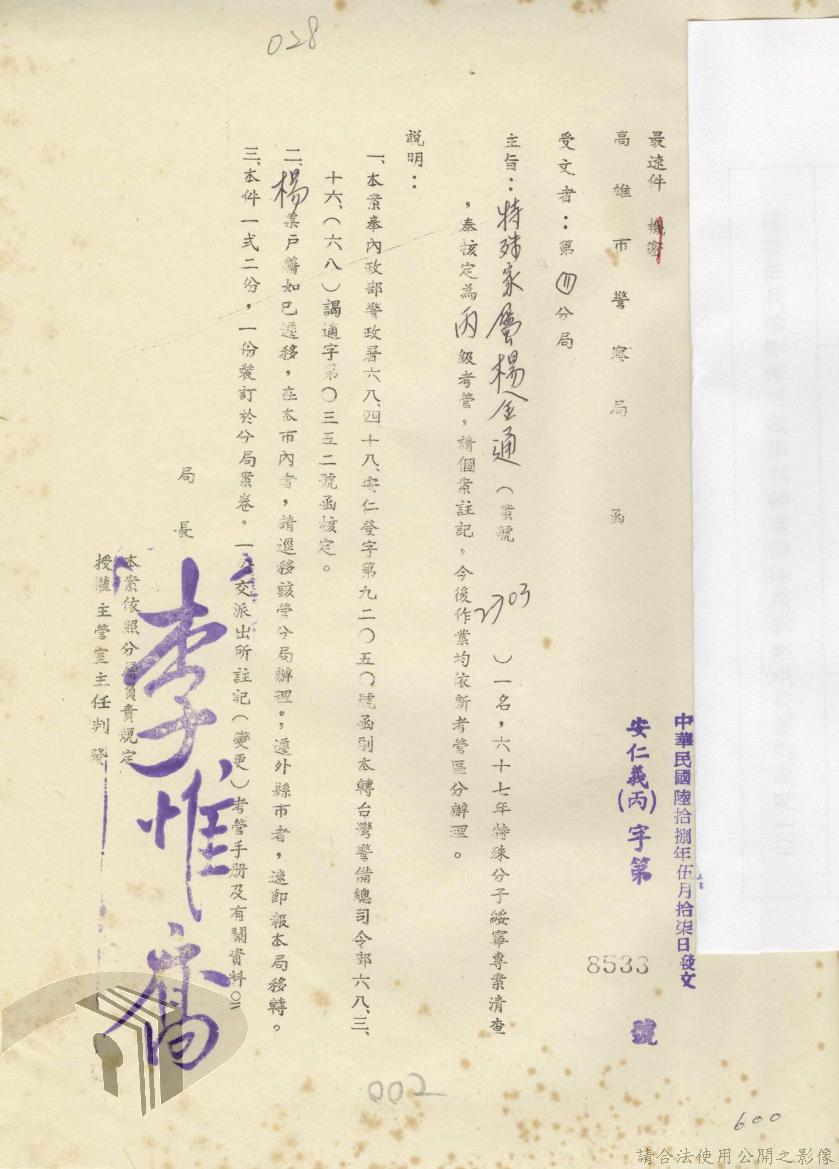 028
最速件 機密
高雄市警察局 函
受文者：第⑪分局
中華民國陸拾捌年伍月拾柒日發文
安仁義(丙)字第 8533 號
主旨：特殊家屬楊金通（案號 2703 ）一名，六十七年特殊分子綏寧專案清查
，奉核定為丙級考管，請個案註記，今後作業均依新考管區分辦理。
說明：
一、本案奉內政部警政署六八、四十八、安仁發字第九二〇五〇號函副本轉台灣警備總司令部六八、三、
十六、（六八）謁適字第〇三五二號函核定。
二、楊某戶籍如已遷移，在本市內者，請逕移該管分局辦理。；遷外縣市者，速即報本局移轉。
三、本件一式二份，一份裝訂於分局案卷。一人交派出所註記（變更）考管手册及有關資料。
局長 李惟喬
本案依照分層負責規定
授權主管室主任判發
002
600
請合法使用公開之影像